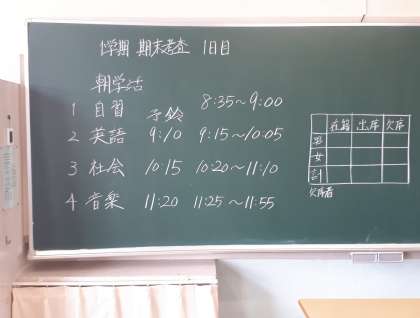 1学期 期末考査 1日目
朝学活
1 自習 予鈴 8:35～9:00
2 英語 9:10 9:15～10:05
3 社会 10:15 10:20～11:10
4 音楽 11:20 11:25～11:55
在籍 出席 欠席
男
女
計
欠席者